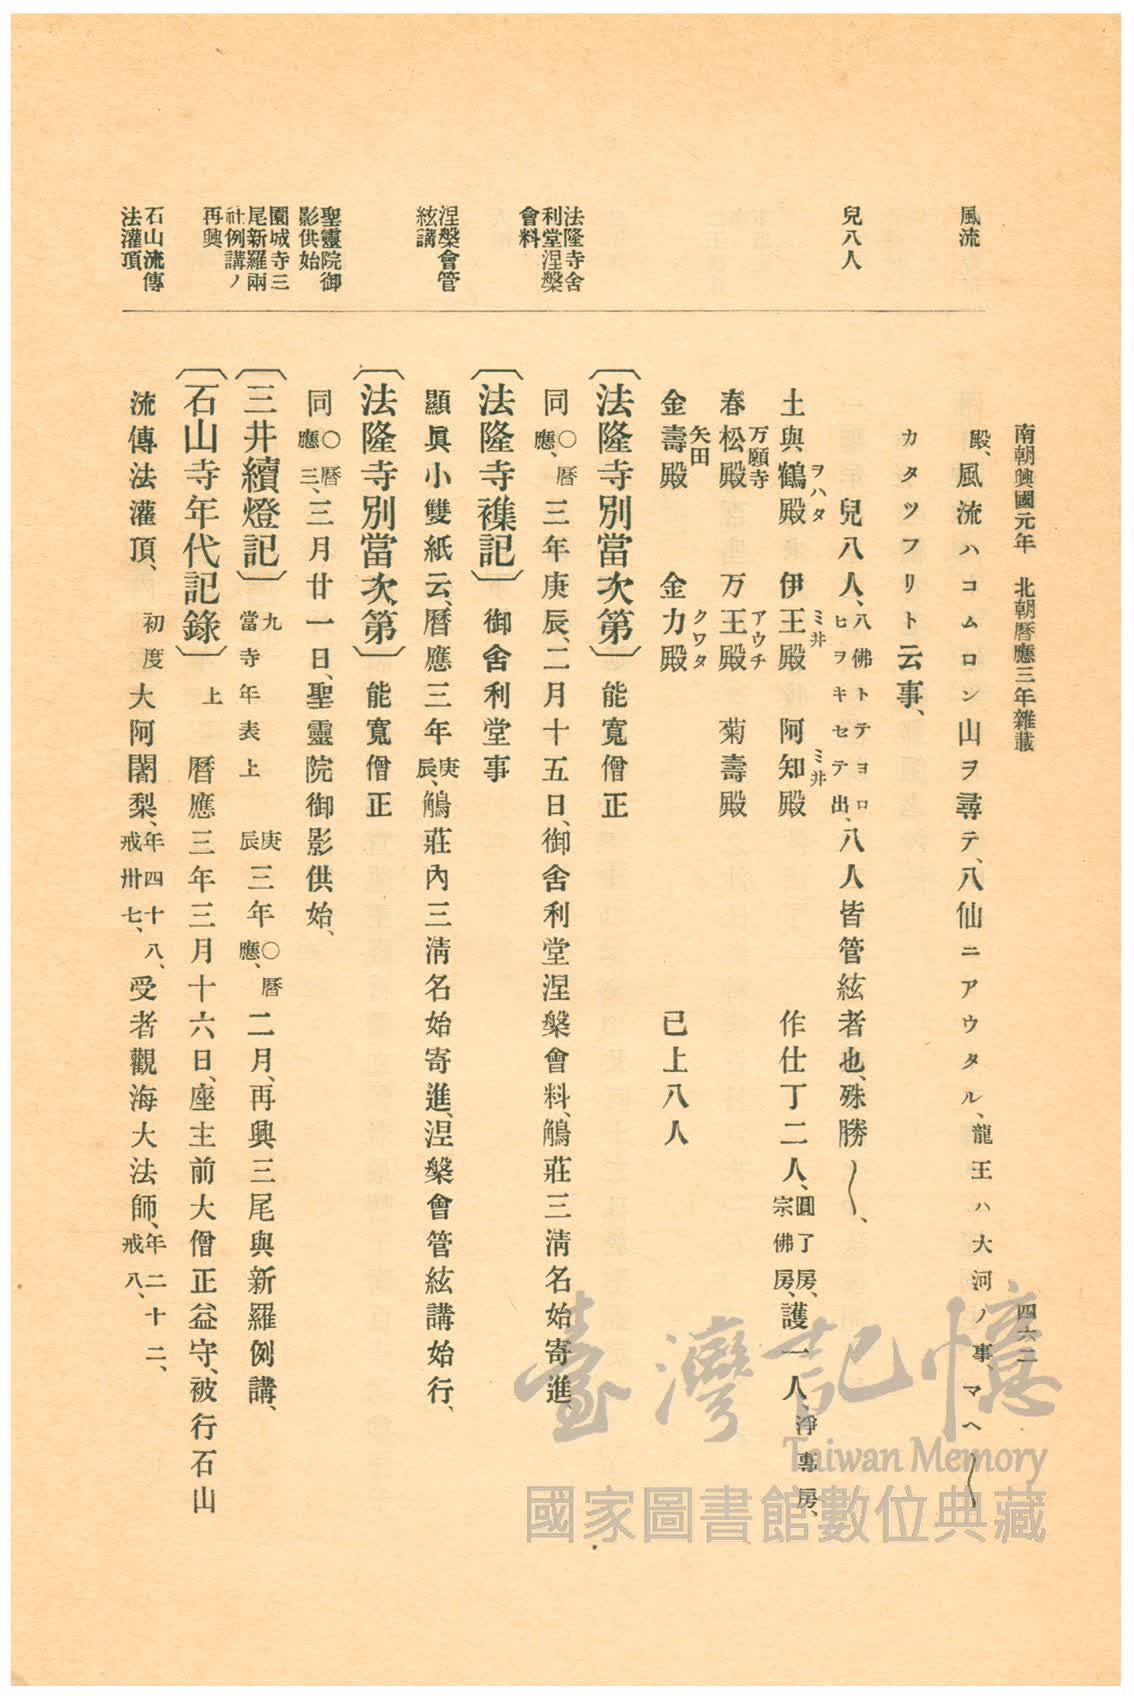 南朝興國元年　北朝曆應三年雜載
四六二
風流
兒八人
法隆寺舍
利堂涅槃
會料
涅槃會管
絃講
聖靈院御
影供始
園城寺三
尾新羅兩
社例講ノ
再興
石山流傳
法灌頂
殿、風流ハコムロン山ヲ尋テ、八仙ニアウタル、龍王ハ大河ノ事、マヘ〱
カタツフリト云事、
兒八人、八佛トテヨロヒヲキセテ出、八人皆管絃者也、殊勝〱、
土與鶴殿ヲハタ　伊王殿ミ井　阿知殿ミ井　作仕丁二人、圓了房、宗佛房、護一人、淨專房、
春松殿万願寺　万王殿アウチ　菊壽殿
金壽殿矢田　金力殿クワタ　已上八人
〔法隆寺別當次第〕能寬僧正
同○曆應、三年庚辰、二月十五日、御舍利堂涅槃會料、鵤莊三淸名始寄進、
〔法隆寺襍記〕御舍利堂事
顯眞小雙紙云、曆應三年庚辰、鵤莊內三淸名始寄進、涅槃會管絃講始行、
〔法隆寺別當次第〕能寬僧正
同○曆應三、三月廿一日、聖靈院御影供始、
〔三井續燈記〕九當寺年表上　庚辰三年○曆應、二月、再興三尾與新羅例講、
〔石山寺年代記錄〕上　曆應三年三月十六日、座主前大僧正益守、被行石山
流傳法灌頂、初度大阿闍梨、年四十八、戒卅七、受者觀海大法師、年二十二、戒八、
臺灣記憶
Taiwan Memory
國家圖書館數位典藏